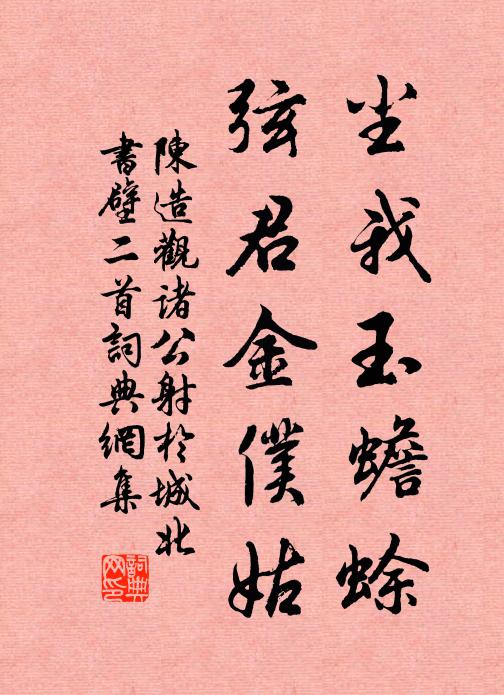 尘我玉蟾蜍
弦君金僕姑
陳造觀諸公射於城北
書壁二首詞典網集
詞典
网印